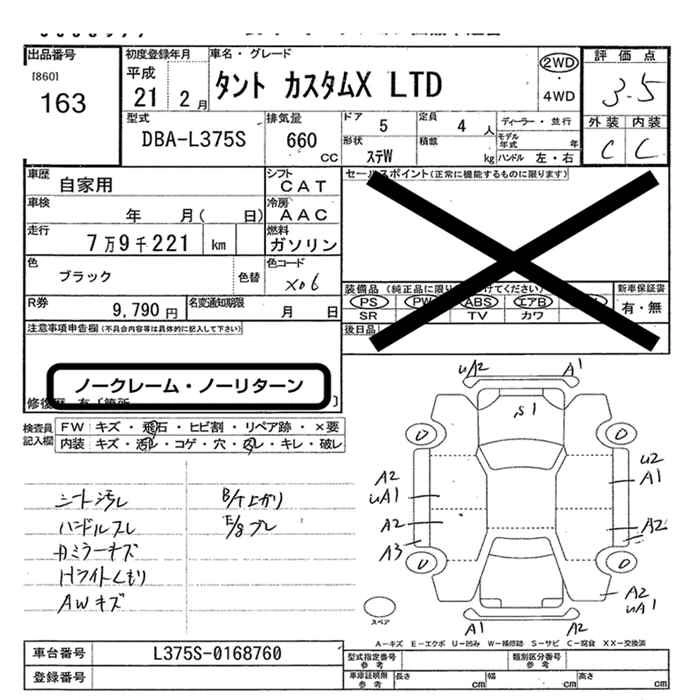 出品番号
[860]
163
初度登録年月
平成
21 2月
車名・グレード
タント カスタムX LTD
2WD
4WD
評価点
3.5
外装 内装
C C
型式
DBA-L375S
排気量
660
CC
ドア
5
定員
4 人
ディーラー・並行
モデル年式 年
形状
ステW
積載
kg
ハンドル 左・右
車歴
自家用
シフト
CAT
車検
年 月( 日)
冷房
AAC
走行
7万9千221 km
燃料
ガソリン
色
ブラック
色替
色コード
X06
R券
9,790 円
名変通知期限
月 日
セールスポイント(正常に機能するものに限ります)
PS PW ABS エアB
SR TV カワ
後日品
新車保証書
有・無
注意事項申告欄(不具合内容等は具体的に記入して下さい)
ノークレーム・ノーリターン
検査員記入欄
FW キズ・飛石・ヒビ割・リペア跡・×要
内装 キズ・汚レ・コゲ・穴・スレ・キレ・破レ
シート汚レ
ハンドルスレ
Hライトくもり
AWキズ
B/T上がり
E/gブレ
uA2 A1
S1
D D
A2
uA1
A2
A3
u2
A1
A2
D D
A2
uA1
A1 A2
スペア
A-キズ E-エクボ U-凹み W-補修跡 S-サビ C-腐食 XX-交換済
車台番号
L375S-0168760
登録番号
型式指定番号
参考
類別区分番号
参考
車庫証明用
参考
長さ cm
幅 cm
高さ cm